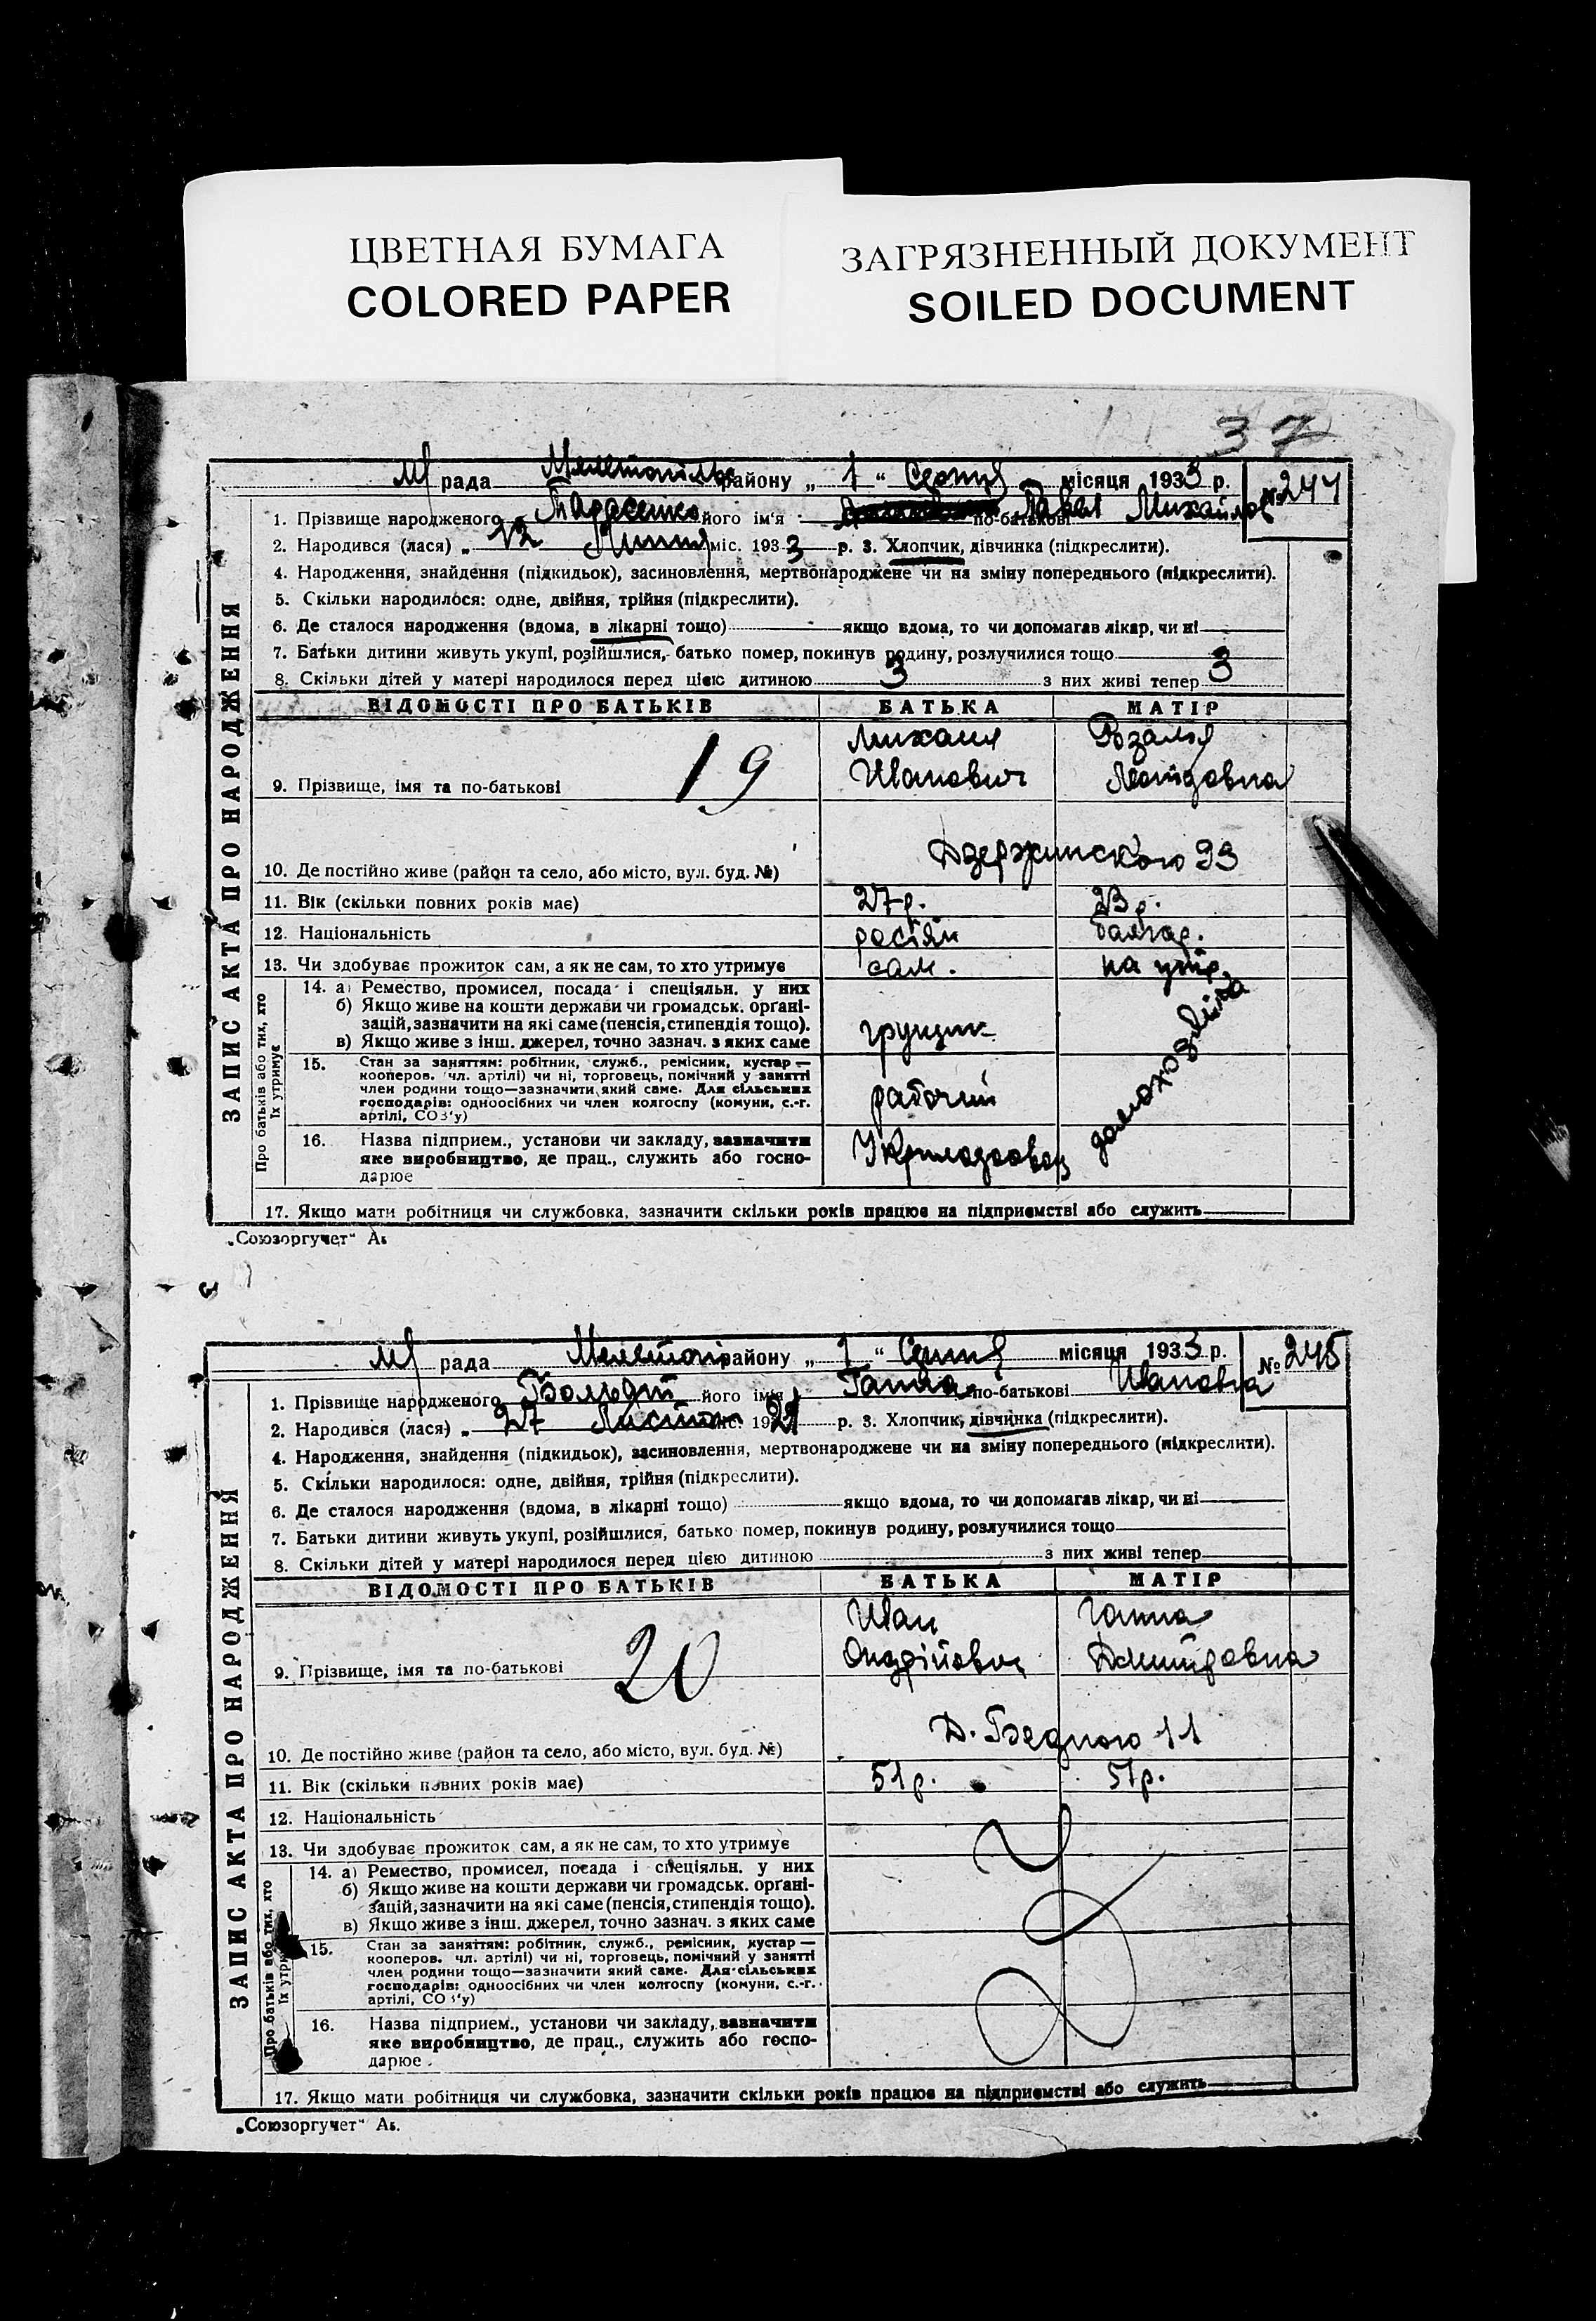 ЦВЕТНАЯ БУМАГА
COLORED PAPER
ЗАГРЯЗНЕННЫЙ ДОКУМЕНТ
SOILED DOCUMENT
37
рада району „ 1 “ Серпня місяця 1933 р. № 244
1. Прізвище народженого Тарасенко його ім'я по-батькові Павел Михайлов
2. Народився (лася) „ 12 Липня міс. 1933 р. 3. Хлопчик, дівчинка (підкреслити).
4. Народження, знайдення (підкидьок), засиновлення, мертвонароджене чи на зміну попереднього (підкреслити).
5. Скільки народилося: одне, двійня, трійня (підкреслити).
6. Де сталося народження (вдома, в лікарні тощо) якщо вдома, то чи допомагав лікар, чи ні
7. Батьки дитини живуть укупі, розійшлися, батько помер, покинув родину, розлучилися тощо
8. Скільки дітей у матері народилося перед цією дитиною 3 з них живі тепер 3
ЗАПИС АКТА ПРО НАРОДЖЕННЯ
ВІДОМОСТІ ПРО БАТЬКІВ БАТЬКА МАТІР
Михаил Розалія
9. Прізвище, імя та по-батькові 19 Иванович
10. Де постійно живе (район та село, або місто, вул. буд. №) Дзержинского 93
11. Вік (скільки повних років має) 27 р. 23 р.
12. Національність росіян болгар.
13. Чи здобуває прожиток сам, а як не сам, то хто утримує сам. на утр.
Про батьків або тих, хто їх утримує
14. а) Ремество, промисел, посада і спеціяльн. у них
б) Якщо живе на кошти держави чи громадськ. орґані-
зацій, зазначити на які саме (пенсія, стипендія тощо).
в) Якщо живе з інш. джерел, точно зазнач. з яких саме
грущик
домохозяйка
15. Стан за заняттям: робітник, служб., ремісник, кустар —
кооперов. чл. артілі) чи ні, торговець, помічний у занятті
член родини тощо—зазначити який саме. Для сільських
господарів: одноосібних чи член колгоспу (комуни, с.-г.
артілі, СОЗ'у)
рабочий
16. Назва підприєм., установи чи закладу, зазначити
яке виробництво, де прац., служить або госпо-
дарює
17. Якщо мати робітниця чи службовка, зазначити скільки років працює на підприємстві або служить
„Союзоргучет“
рада Мелітоп району „ 1 “ Серпня місяця 1933 р. № 245
1. Прізвище народженого його імя Ганна по-батькові Ивановна
2. Народився (лася) „ 27 Листоп міс. 1921 р. 3. Хлопчик, дівчинка (підкреслити).
4. Народження, знайдення (підкидьок), засиновлення, мертвонароджене чи на зміну попереднього (підкреслити).
5. Скільки народилося: одне, двійня, трійня (підкреслити).
6. Де сталося народження (вдома, в лікарні тощо) якщо вдома, то чи допомагав лікар, чи ні
7. Батьки дитини живуть укупі, розійшлися, батько помер, покинув родину, розлучилися тощо
8. Скільки дітей у матері народилося перед цією дитиною з них живі тепер
ЗАПИС АКТА ПРО НАРОДЖЕННЯ
ВІДОМОСТІ ПРО БАТЬКІВ БАТЬКА МАТІР
Иван Ганна
9. Прізвище, імя та по-батькові 20 Андрійович Дмитровна
10. Де постійно живе (район та село, або місто, вул. буд. №) Д. Бедного 11
11. Вік (скільки повних років має) 51 р. 51 р.
12. Національність
13. Чи здобуває прожиток сам, а як не сам, то хто утримує
Про батьків або тих, хто їх утри
14. а) Ремество, промисел, посада і спеціяльн. у них
б) Якщо живе на кошти держави чи громадськ. орґані-
зацій, зазначити на які саме (пенсія, стипендія тощо).
в) Якщо живе з інш. джерел, точно зазнач. з яких саме
15. Стан за заняттям: робітник, служб., ремісник, кустар —
кооперов. чл. артілі) чи ні, торговець, помічний у занятті
член родини тощо—зазначити який саме. Для сільських
господарів: одноосібних чи член колгоспу (комуни, с.-г.
артілі, СОЗ'у)
16. Назва підприєм., установи чи закладу, зазначити
яке виробництво, де прац., служить або госпо-
дарює
17. Якщо мати робітниця чи службовка, зазначити скільки років працює на підприємстві або служить
„Союзоргучет“